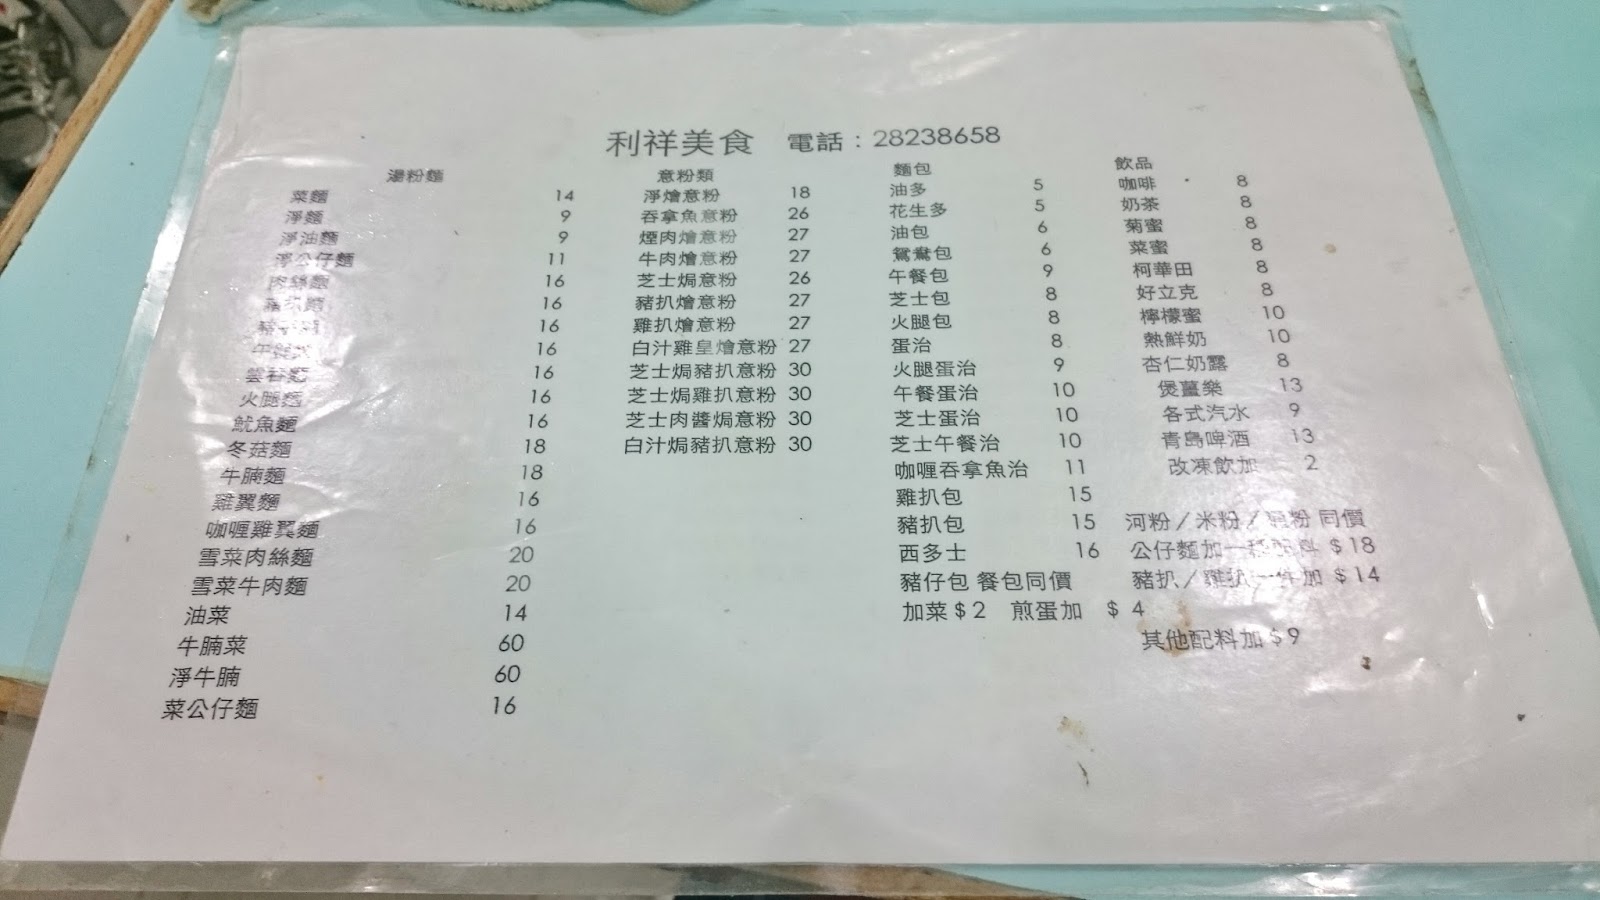 利祥美食 電話：28238658
湯粉麵
菜麵 14
淨麵 9
淨油麵 9
淨公仔麵 11
肉絲麵 16
豬扒麵 16
16
16
雲吞麵 16
火腿麵 16
魷魚麵 16
冬菇麵 18
牛腩麵 18
雞翼麵 16
咖喱雞翼麵 16
雪菜肉絲麵 20
雪菜牛肉麵 20
油菜 14
牛腩菜 60
淨牛腩 60
菜公仔麵 16
意粉類
淨燴意粉 18
吞拿魚意粉 26
煙肉燴意粉 27
牛肉燴意粉 27
芝士焗意粉 26
豬扒燴意粉 27
雞扒燴意粉 27
白汁雞皇燴意粉 27
芝士焗豬扒意粉 30
芝士焗雞扒意粉 30
芝士肉醬焗意粉 30
白汁焗豬扒意粉 30
麵包
油多 5
花生多 5
油包 6
鴛鴦包 6
午餐包 9
芝士包 8
火腿包 8
蛋治 8
火腿蛋治 9
午餐蛋治 10
芝士蛋治 10
芝士午餐治 10
咖喱吞拿魚治 11
雞扒包 15
豬扒包 15
西多士 16
豬仔包 餐包同價
加菜＄2 煎蛋加 ＄ 4
飲品
咖啡 8
奶茶 8
菊蜜 8
菜蜜 8
柯華田 8
好立克 8
檸檬蜜 10
熱鮮奶 10
杏仁奶露 8
煲薑樂 13
各式汽水 9
青島啤酒 13
改凍飲加 2
河粉／米粉／ 粉 同價
公仔麵加一種配料 ＄18
豬扒／雞扒一件加 ＄14
其他配料加＄9